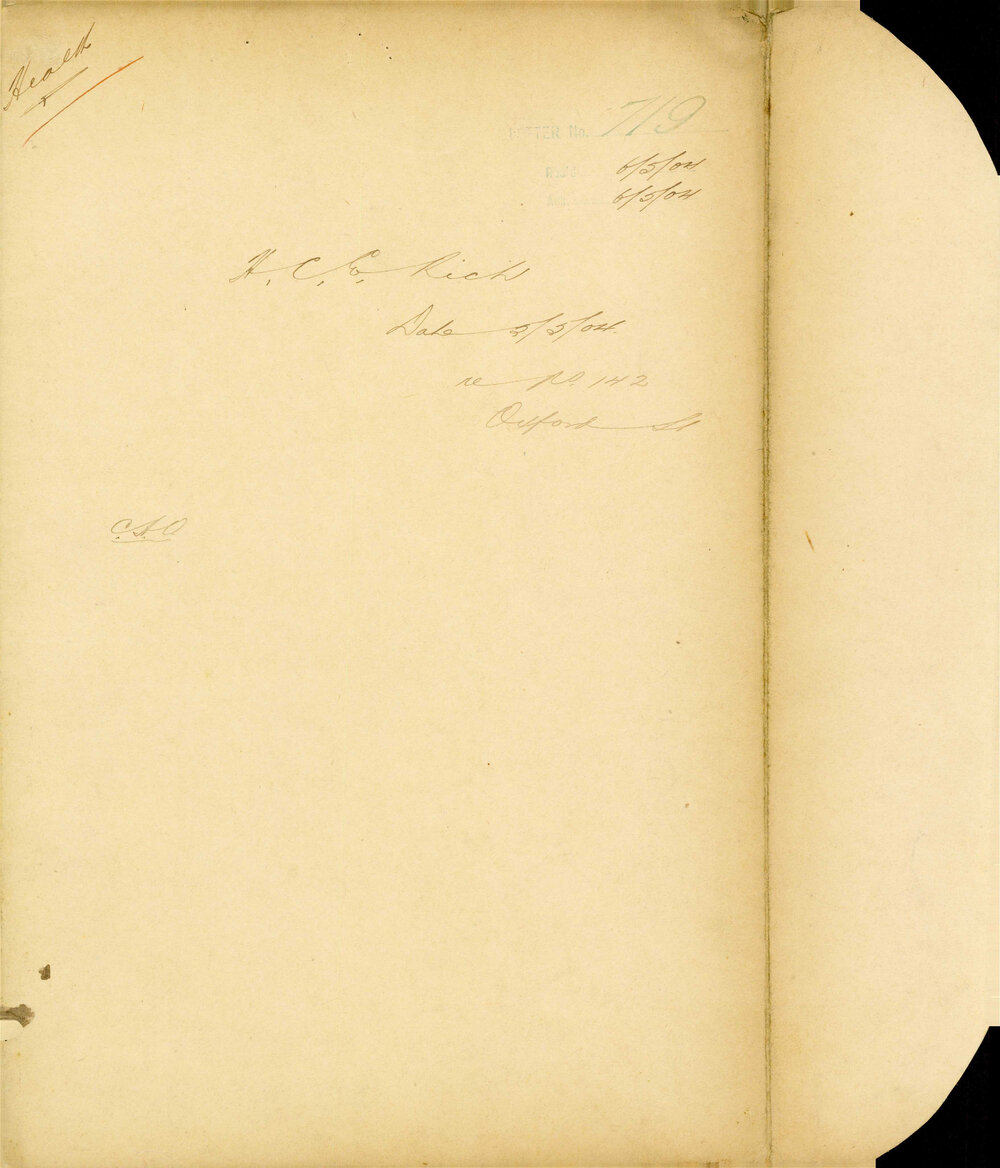 Health
LETTER No. 719
Recd. 6/5/04
Ack. 6/5/04
H. C. E. Rich
Date 5/5/04.
re No. 142
Oxford St
C.H.O